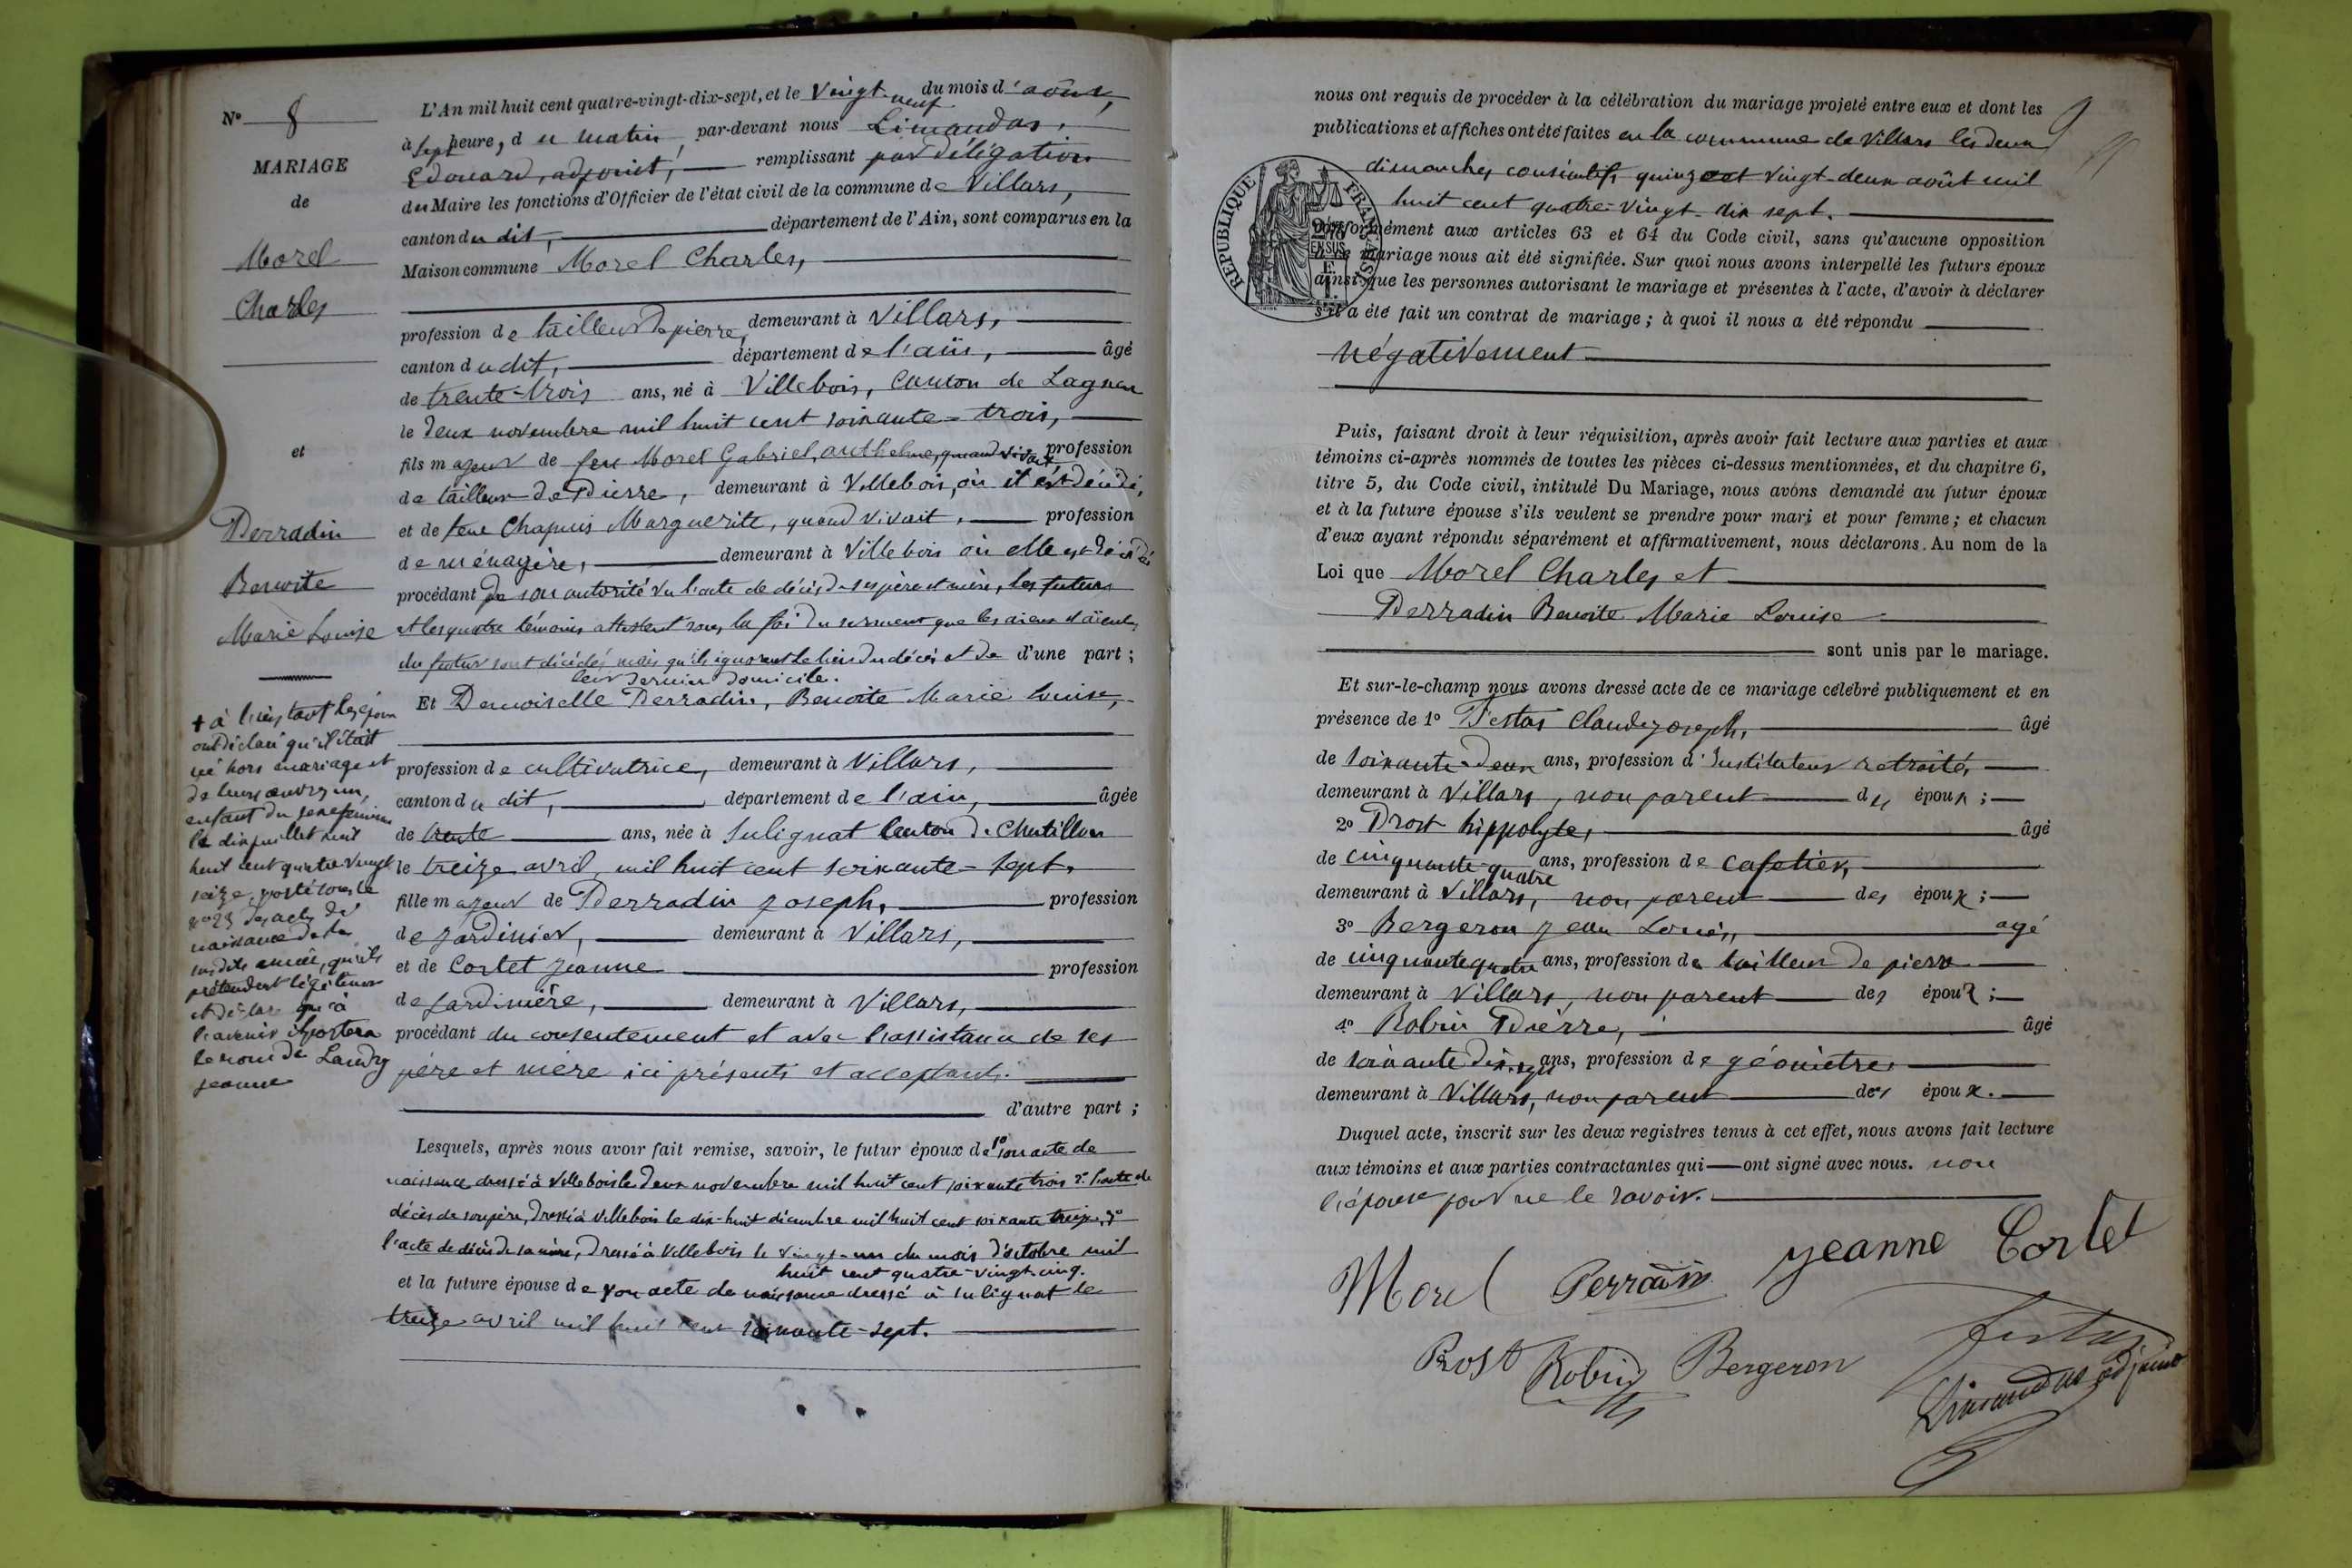 N° 8
MARIAGE
de
Morel
Charles
et
Perradin
Benoite
Marie Louise
+ à l'instant les époux
ont déclaré qu'il était
né hors mariage et
de leurs œuvres un
enfant du sexe féminin
le dix juillet mil
huit cent quatre vingt
seize, porté sous le
n° 23 des actes de
naissance de la
susdite année, qu'ils
prétendent légitimer
et déclare qu'à
l'avenir il portera
le nom de Landry
Jeanne
L'An mil huit cent quatre-vingt-dix-sept, et le vingt-neuf du mois d'août,
à sept heure, du matin, par-devant nous Limandas,
Edouard, adjoint, remplissant par délégation
du Maire les fonctions d'Officier de l'état civil de la commune de Villars,
canton du dit, département de l'Ain, sont comparus en la
Maison commune Morel Charles,
profession de tailleur de pierre, demeurant à Villars,
canton du dit, département de l'ain, âgé
de trente-trois ans, né à Villebois, Canton de Lagnieu
le deux novembre mil huit cent soixante-trois,
fils majeur de feu Morel Gabriel, anthelme, quand vivait profession
de tailleur de Pierre, demeurant à Villebois, où il est décédé,
et de feue Chapuis Marguerite, quand vivait, profession
de ménagère, demeurant à Villebois où elle est décédée
procédant de son autorité vu l'acte de décès de ses père et mère, les futurs
et les quatre témoins attestent sous la foi du serment que les aïeux et aïeules
du futur sont décédés mais qu'ils ignorent le lieu du décès et de d'une part ;
leur dernier domicile.
Et Demoiselle Perradin, Benoite Marie Louise,
profession de cultivatrice, demeurant à Villars,
canton du dit, département de l'ain, âgée
de trente ans, née à Sulignat Canton de Chatillon
le treize avril, mil huit cent soixante-sept,
fille majeur de Perradin Joseph, profession
de Jardinier, demeurant à Villars,
et de Cortet Jeanne profession
de Jardinière, demeurant à Villars,
procédant du consentement et avec l'assistance de ses
père et mère ici présents et acceptants.
d'autre part ;
Lesquels, après nous avoir fait remise, savoir, le futur époux de 1° son acte de
naissance dressé à Villebois le deux novembre mil huit cent soixante trois 2° l'acte de
décès de son père, dressé à Villebois le dix-huit décembre mil huit cent soixante treize, 3°
l'acte de décès de sa mère, dressé à Villebois le vingt-un du mois d'octobre mil
huit cent quatre-vingt-cinq.
et la future épouse de son acte de naissance dressé à Sulignat le
treize avril mil huit cent soixante-sept.
nous ont requis de procéder à la célébration du mariage projeté entre eux et dont les
publications et affiches ont été faites en la commune de Villars les deux
dimanches consécutifs quinze et vingt-deux août mil
huit cent quatre-vingt-dix sept.
RÉPUBLIQUE FRANÇAISE
Conformément aux articles 63 et 64 du Code civil, sans qu'aucune opposition
à ce mariage nous ait été signifiée. Sur quoi nous avons interpellé les futurs époux
ainsi que les personnes autorisant le mariage et présentes à l'acte, d'avoir à déclarer
s'il a été fait un contrat de mariage ; à quoi il nous a été répondu
négativement
Puis, faisant droit à leur réquisition, après avoir fait lecture aux parties et aux
témoins ci-après nommés de toutes les pièces ci-dessus mentionnées, et du chapitre 6,
titre 5, du Code civil, intitulé Du Mariage, nous avons demandé au futur époux
et à la future épouse s'ils veulent se prendre pour mari et pour femme ; et chacun
d'eux ayant répondu séparément et affirmativement, nous déclarons. Au nom de la
Loi que Morel Charles et
Perradin Benoite Marie Louise
sont unis par le mariage.
Et sur-le-champ nous avons dressé acte de ce mariage célébré publiquement et en
présence de 1° Festas Claude Joseph, âgé
de soixante-deux ans, profession d'Instituteur retraité,
demeurant à Villars, non parent des époux ;
2° Prost hippolyte, âgé
de cinquante-quatre ans, profession de cafetier,
demeurant à Villars, non parent des époux ;
3° Bergeron Jean Louis, agé
de cinquante quatre ans, profession de tailleur de pierre
demeurant à Villars, non parent des époux ;
4° Robin Pierre, âgé
de soixante dix-sept ans, profession de géomètre,
demeurant à Villars, non parent des époux.
Duquel acte, inscrit sur les deux registres tenus à cet effet, nous avons fait lecture
aux témoins et aux parties contractantes qui ont signé avec nous. non
l'épouse pour ne le savoir.
Morel Perradin Jeanne Cortet
Prost Robin Bergeron Festas
Limandas adjoint